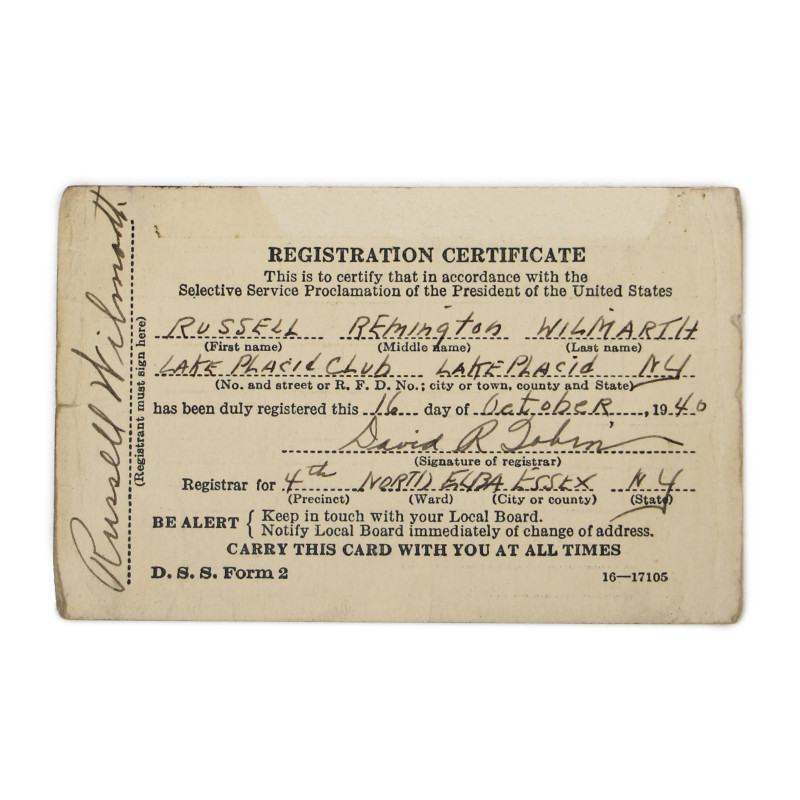 REGISTRATION CERTIFICATE
This is to certify that in accordance with the
Selective Service Proclamation of the President of the United States
RUSSELL REMington WILMARTH
(First name) (Middle name) (Last name)
LAKE PLACID CLUB LAKE PLACID NY
(No. and street or R. F. D. No.; city or town, county and State)
has been duly registered this 16 day of OctobeR, 1940
David R
(Signature of registrar)
Registrar for 4th NORTH ELBA ESSEX NY
(Precinct) (Ward) (City or county) (State)
BE ALERT { Keep in touch with your Local Board.
Notify Local Board immediately of change of address.
CARRY THIS CARD WITH YOU AT ALL TIMES
D. S. S. Form 2 16—17105
Russell Wilmarth
(Registrant must sign here)